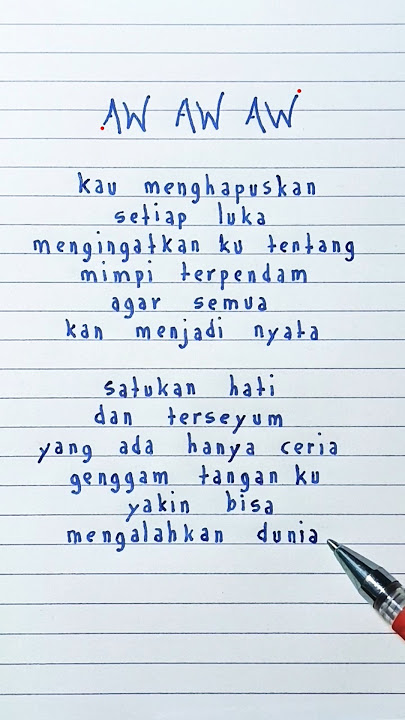 AW AW AW
kau menghapuskan
setiap luka
mengingatkan ku tentang
mimpi terpendam
agar semua
kan menjadi nyata
satukan hati
dan terseyum
yang ada hanya ceria
genggam tangan ku
yakin bisa
mengalahkan dunia